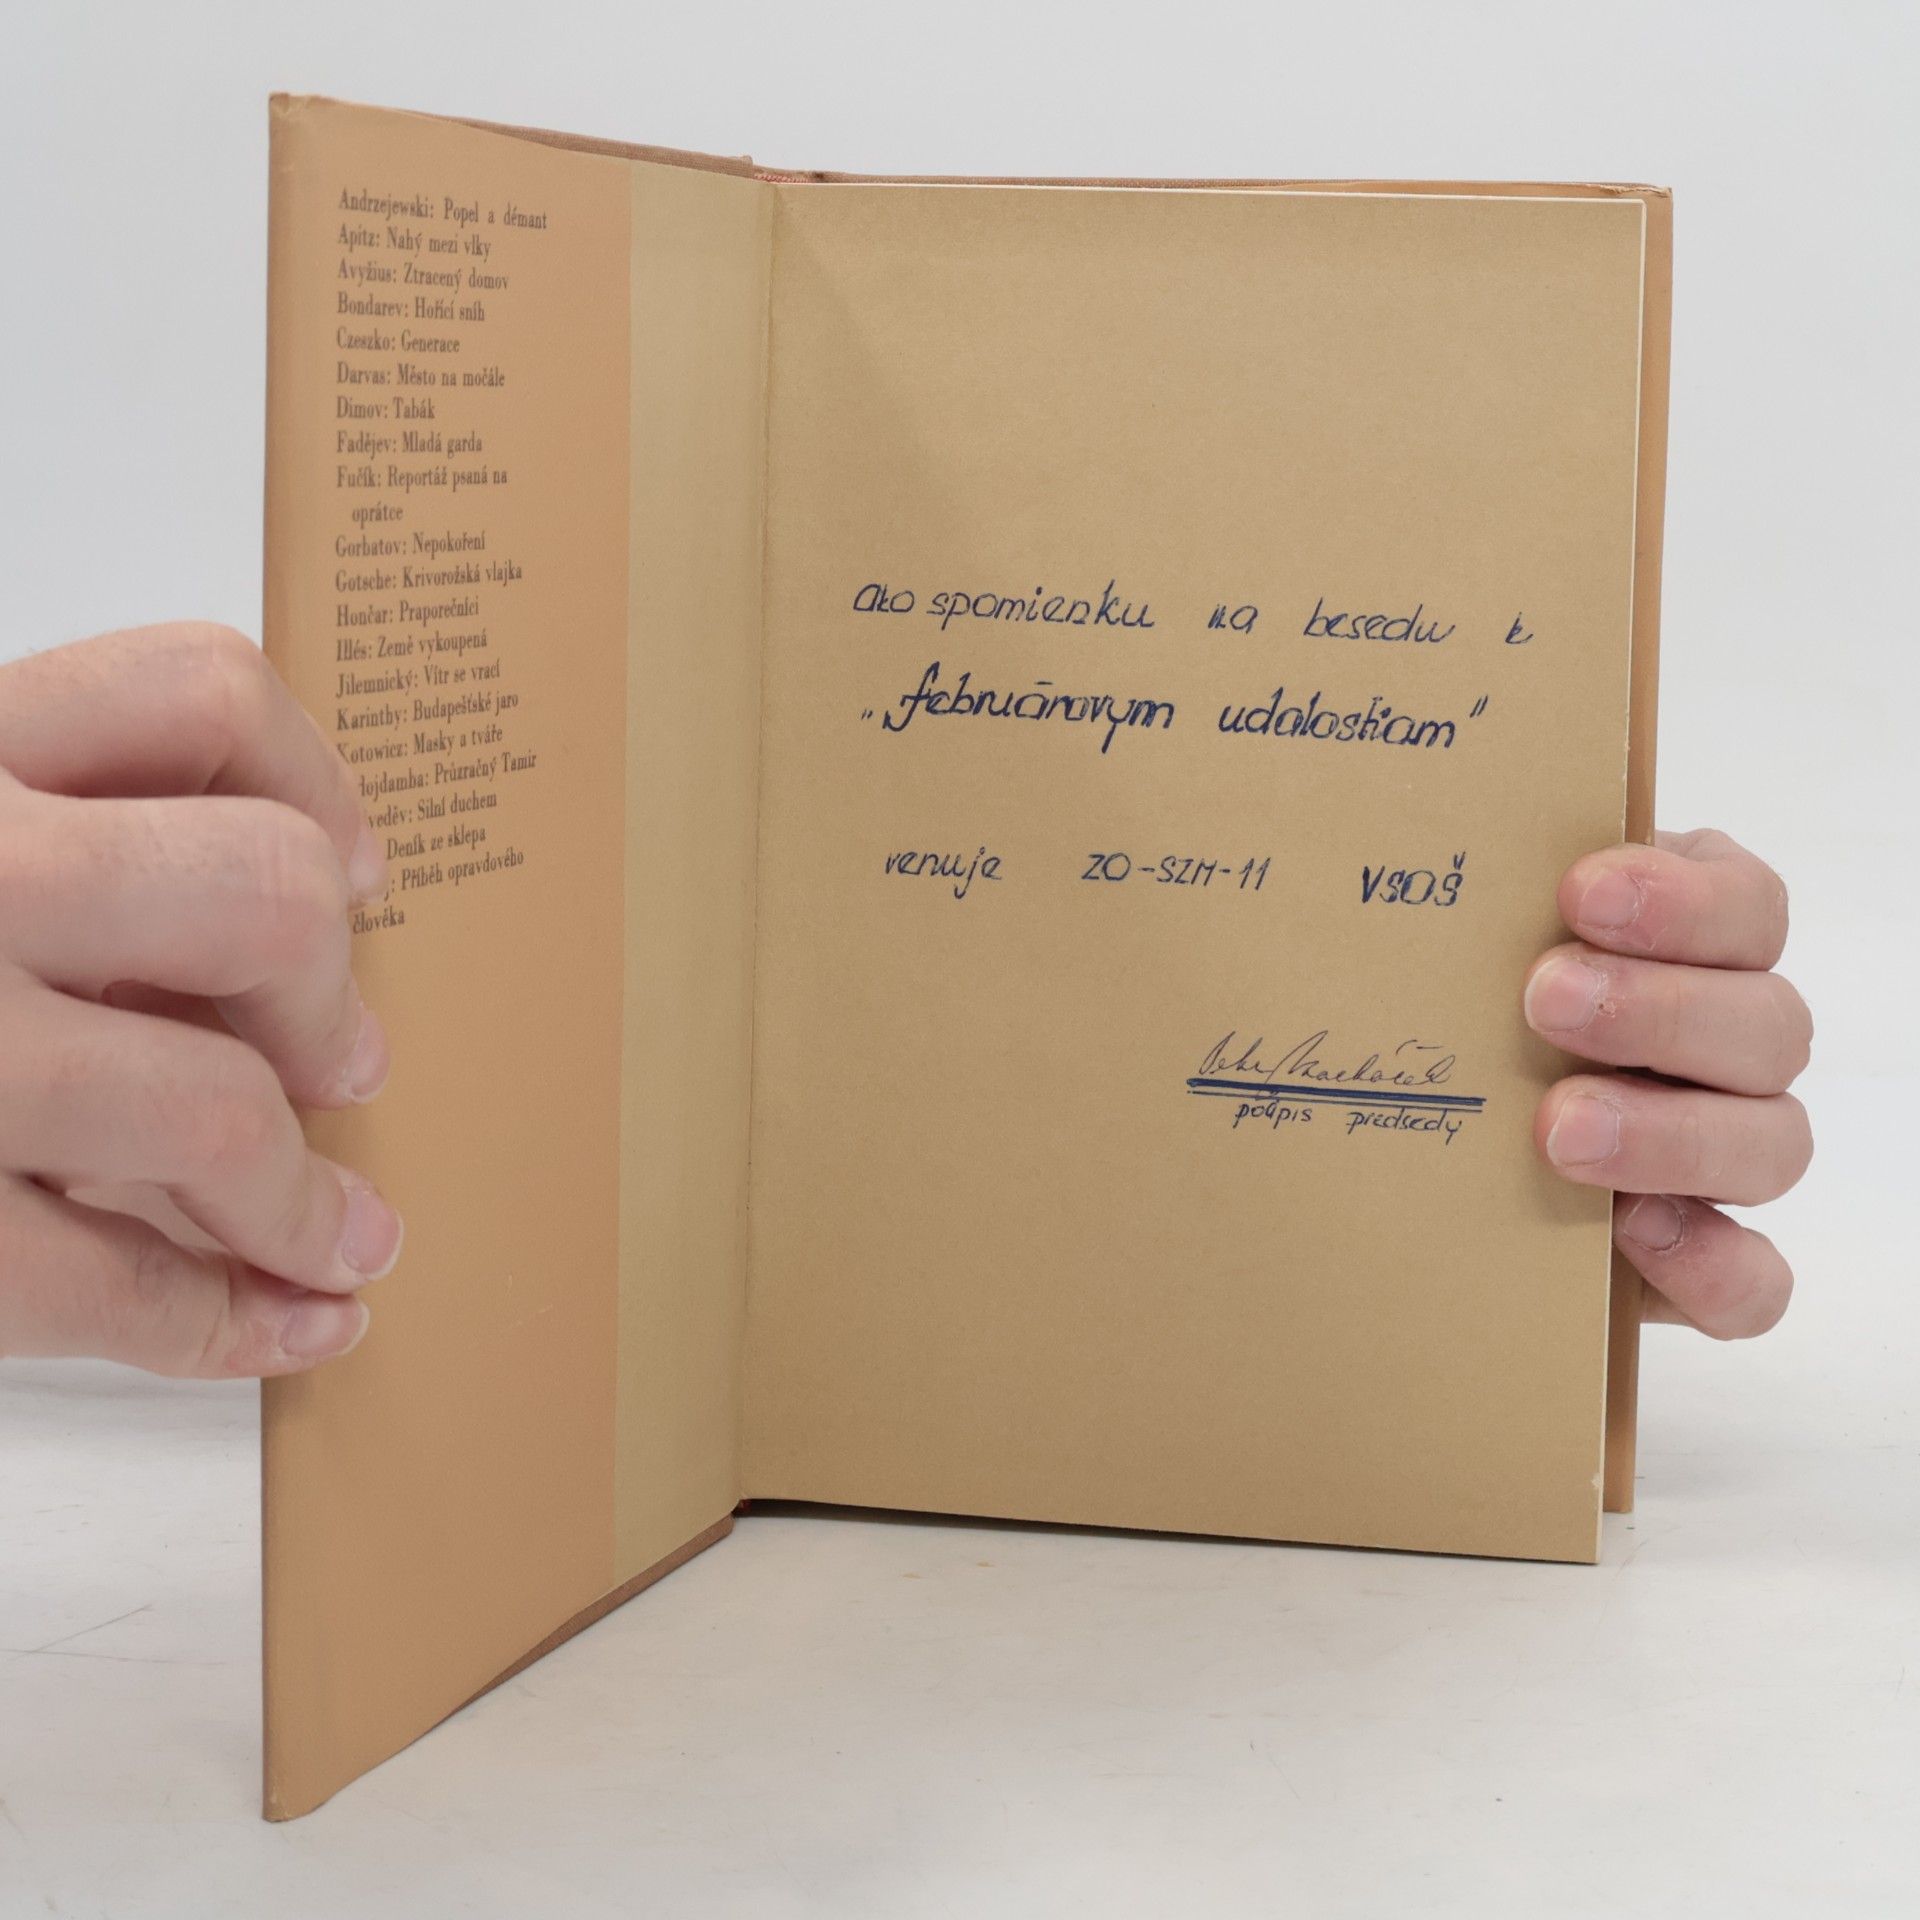 Andrzejewski: Popel a démant
Apitz: Nahý mezi vlky
Avyžius: Ztracený domov
Bondarev: Hořící sníh
Czeszko: Generace
Darvas: Město na močále
Dimov: Tabák
Fadějev: Mladá garda
Fučík: Reportáž psaná na
oprátce
Gorbatov: Nepokoření
Gotsche: Krivorožská vlajka
Hončar: Praporečníci
Illés: Země vykoupená
Jilemnický: Vítr se vrací
Karinthy: Budapešťské jaro
Kotowicz: Masky a tváře
lojdamba: Průzračný Tamir
veděv: Silní duchem
Deník ze sklepa
j: Příběh opravdového
člověka
ako spomienku na besedu k
„februárovym udalostiam"
venuje ZO-SZM-11 VSOŠ
podpis predsedy